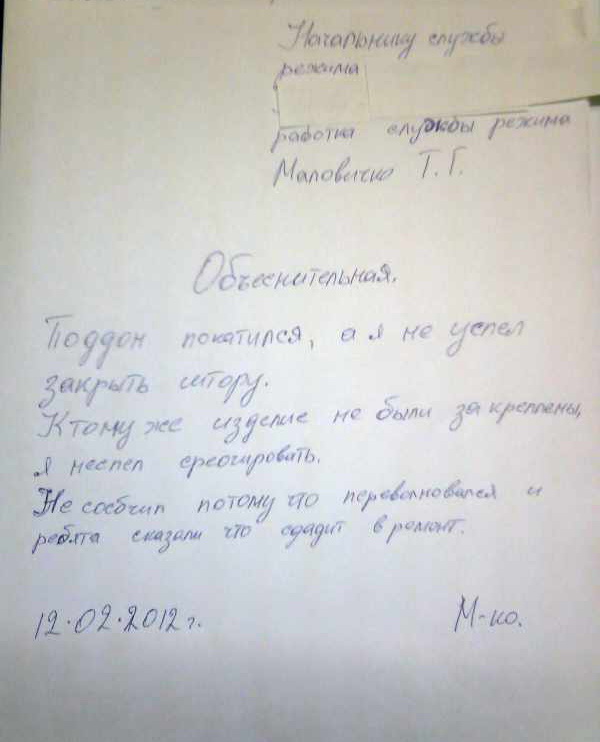 Начальнику службы
режима
работка службы режима
Маловичко Т.Г.
Объеснительная.
Поддон покатился, а я не успел
закрыть штору.
Ктому же изделие не были закреплены,
я неспел среогировать.
Не сообчил потому что переволновался и
ребята сказали что сдадит в ремонт.
12.02.2012г.
М-ко.